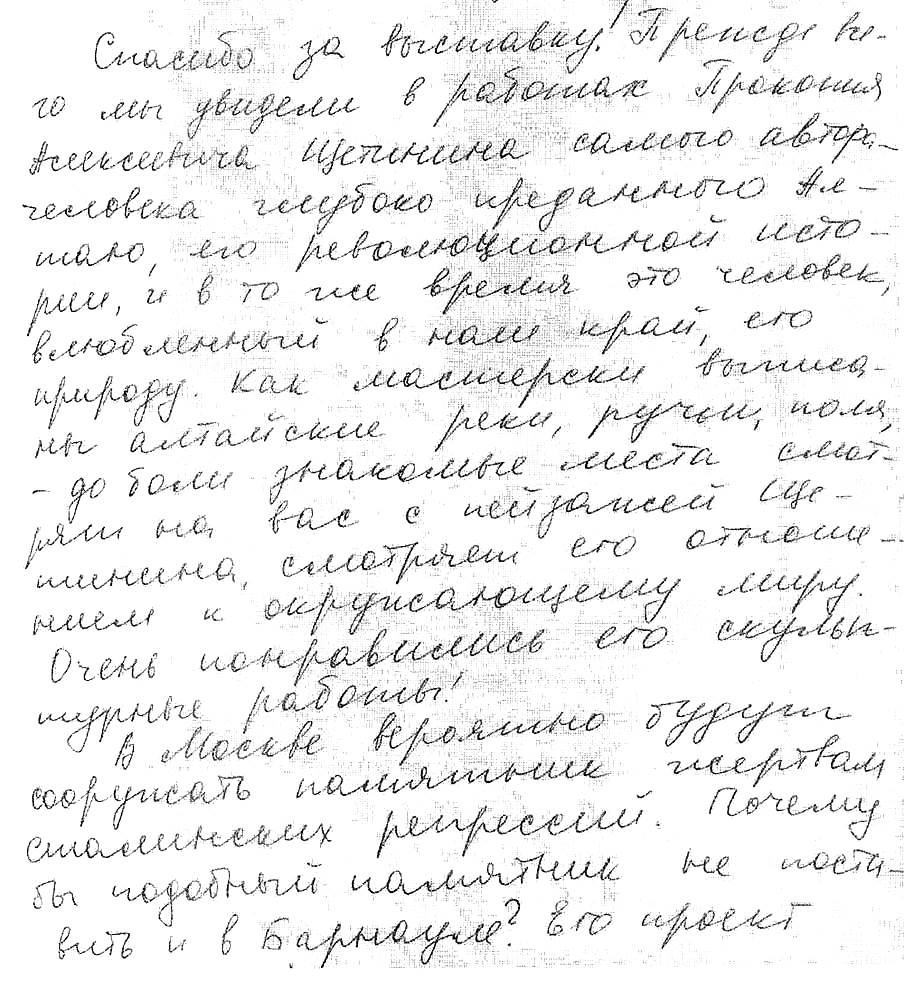 Спасибо за выставку! Прежде вс-
го мы увидели в работах Прокопия
Алексеевича Щетинина самого автора-
человека глубоко преданного Ал-
таю, его революционной исто-
рии, и в то же время это человек,
влюбленный в наш край, его
природу. Как мастерски выписа-
ны алтайские реки, ручьи, поля,
- до боли знакомые места смот-
рят на вас с пейзажей Ще-
тинина, смотрят его отноше-
нием к окружающему миру.
Очень понравились его скульп-
турные работы!
В Москве вероятно будут
сооружать памятник жертвам
сталинских репрессий. Почему
бы подобный памятник не поста-
вить и в Барнауле? Его проект